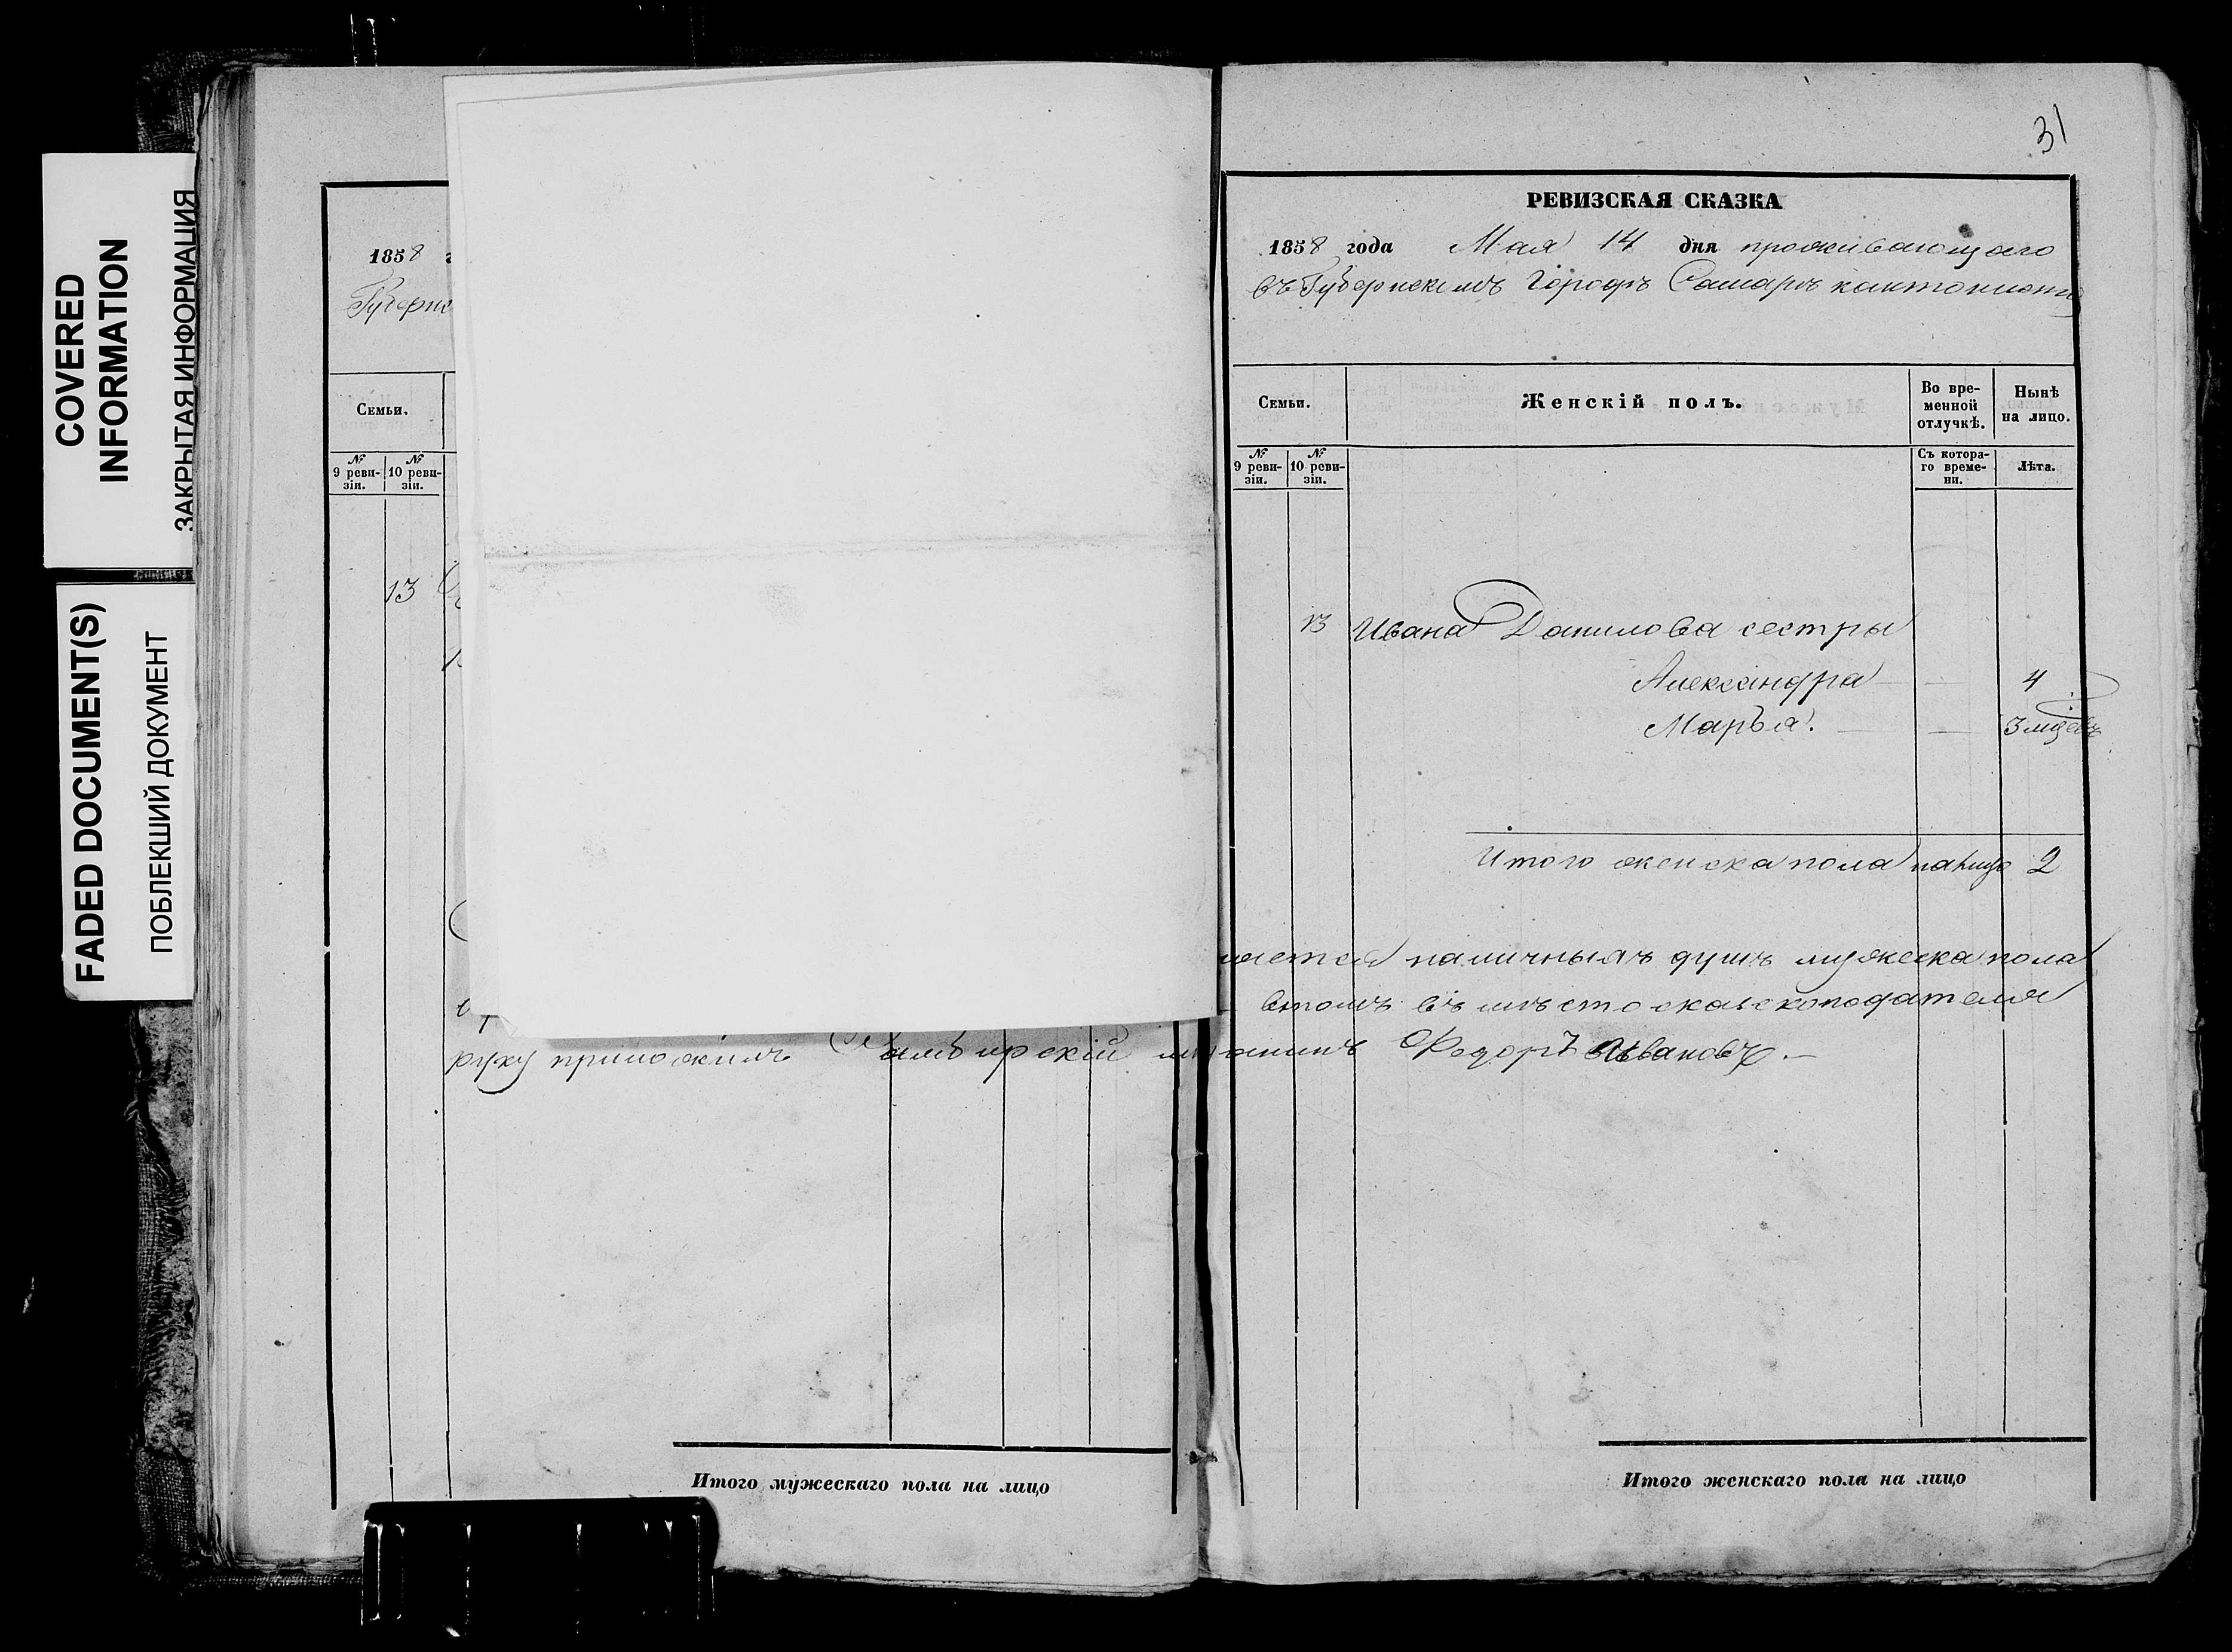 COVERED
INFORMATION
ЗАКРЫТАЯ ИНФОРМАЦИЯ
FADED DOCUMENT(S)
ПОБЛЕКШИЙ ДОКУМЕНТ
1858
Губерн
Семьи.
№ 9 реви-зіи.
№ 10 реви-зіи.
13
31
РЕВИЗСКАЯ СКАЗКА
1858 года Мая 14 дня проживающаго
въ Губернскимъ Городѣ Самарѣ кантонист
Семьи.
Женскій полъ.
Во вре-менной отлучкѣ.
Нынѣ на лицо.
№ 9 реви-зіи.
№ 10 реви-зіи.
Съ котора-го време-ни.
Лѣта.
13 Ивана Данилова сестры
Александра 4
Марья. 3 мцевъ
Итого женска пола налицо 2
наличныхъ душъ мужеска пола
втомъ въместо сказскоподателя
руку приложилъ Симбирскій Федоръ Ивановъ.
Итого мужескаго пола на лицо
Итого женскаго пола на лицо